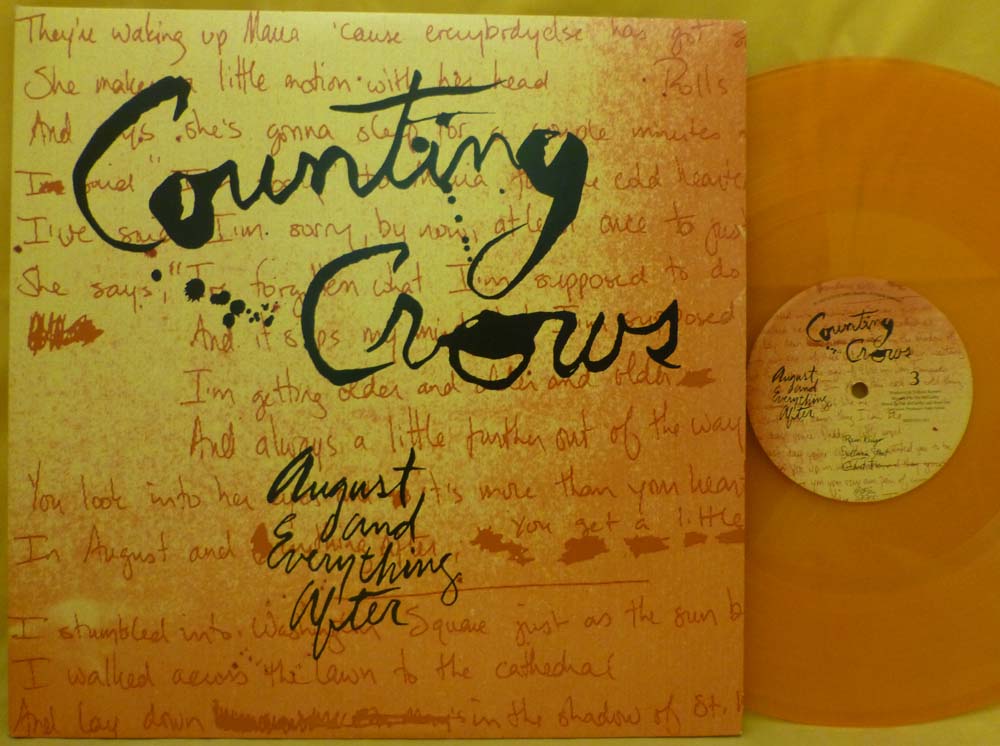 They're waking up Maria 'cause everybody else has got s
She makes a little motion with her head Rolls
And says she's gonna sleep for a couple minutes
Counting
I'm said to Maria for the cold hearted
I've said I'm sorry, by now, at least once to just
She says, "I've forgotten what I'm supposed to do
Crows
And it slips my mind supposed
I'm getting older and older and older
And always a little further out of the way
August
and
Everything
After
You look into her it's more than your heart
You get a little
In August and everything after
I stumbled into Washington Square just as the sun b
I walked across the lawn to the cathedral
And lay down in the shadow of St.
Counting
Crows
3
August
and
Everything
After
Rain King
Sullivan Street
Ghost Train